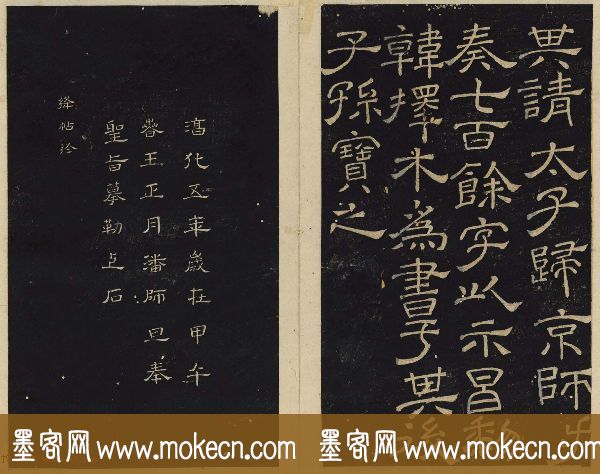 其請太子歸京師出
奏七百餘字以示昌黎
韓擇木爲書子其後
子孫寶之
淳化五年歲在甲午
春王正月潘師旦奉
聖旨摹勒上石
絳帖終
墨客网 www.mokecn.com 墨客网 www.mokecn.com